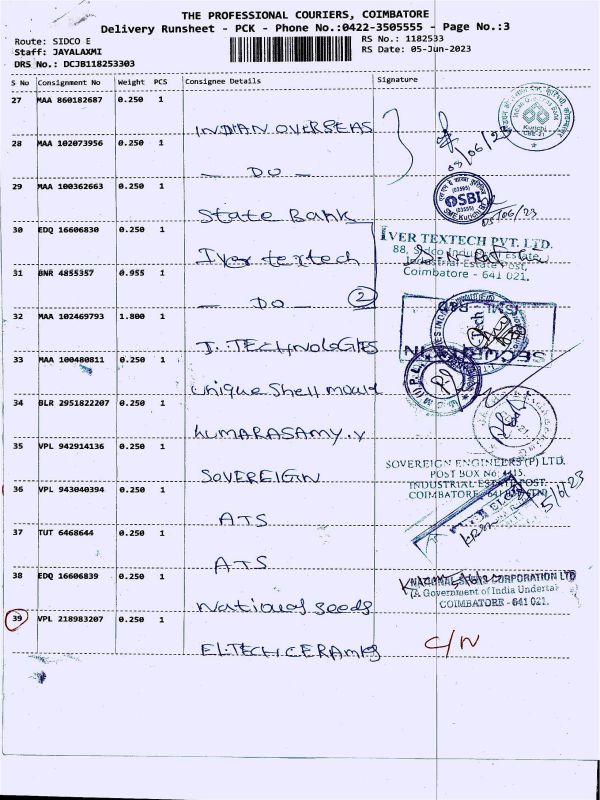 THE PROFESSIONAL COURIERS, COIMBATORE
Delivery Runsheet - PCK - Phone No.:0422-3505555 - Page No.:3
Route: SIDCO E
Staff: JAYALAXMI
DRS No.: DCJB118253303
RS No.: 1182533
RS Date: 05-Jun-2023
S No Consignment No Weight PCS Consignee Details Signature
27 MAA 860182687 0.250 1
INDIAN OVERSEAS
05/06/23
28 MAA 102073956 0.250 1
— DO —
29 MAA 100362663 0.250 1
State Bank
SBI
05/06/23
30 EDQ 16606830 0.250 1
Iver textech
IVER TEXTECH PVT. LTD.
88, Sidco Industrial Estate,
Industrial Estate Post,
Coimbatore - 641 021.
31 BNR 4855357 0.955 1
— DO — 2
32 MAA 102469793 1.800 1
J. TECHNOLOGIES
SECURITY IN
33 MAA 100480811 0.250 1
Unique Shell mould
34 BLR 2951822207 0.250 1
KUMARASAMY.V
35 VPL 942914136 0.250 1
SOVEREIGN
SOVEREIGN ENGINEERS (P) LTD.
POST BOX No: 4415.
INDUSTRIAL ESTATE POST.
COIMBATORE
5/6/23
36 VPL 943040394 0.250 1
ATS
37 TUT 6468644 0.250 1
ATS
38 EDQ 16606839 0.250 1
National seeds
NATIONAL SEEDS CORPORATION LTD
(A Government of India Underta
COIMBATORE - 641 021.
39 VPL 218983207 0.250 1
EL.TECH.CERAMICS
C/N